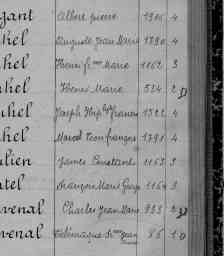 gant Albert pierre 1906 4
hel Auguste Jean Marie 1890 4
hel Henri fois Marie 1162 3
hel Henri Marie 524 2 D
hel Joseph Hip francois 1522 4
hel Marcel Leon françois 1791 4
lien James Constant 1153 3
tel François Marie 1164 3
venal Charles Jean Marie 953 2 D
venal Télémaque Jean 85 1 D